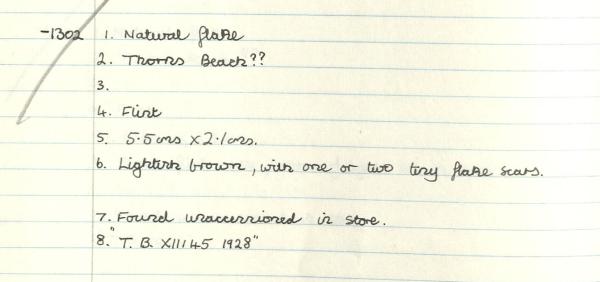 -1302 1. Natural flake
2. Thorns Beach??
3.
4. Flint
5. 5.5cms x 2.1cms.
6. Lightish brown, with one or two tiny flake scars.
7. Found unaccessioned in store.
8. "T. B. XIII 45 1928"